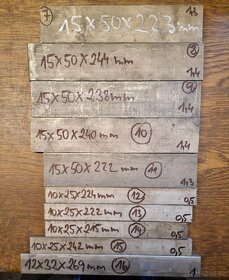 7 15x50x223mm 1,3
15x50x244mm 8 1,4
15x50x238mm 9 1,4
15x50x240mm 10 1,4
15x50x222mm 11 1,3
10x25x224mm 12 0,5
10x25x222mm 13 0,5
10x25x215mm 14 0,5
10x25x242mm 15 0,5
12x32x269mm 16 1